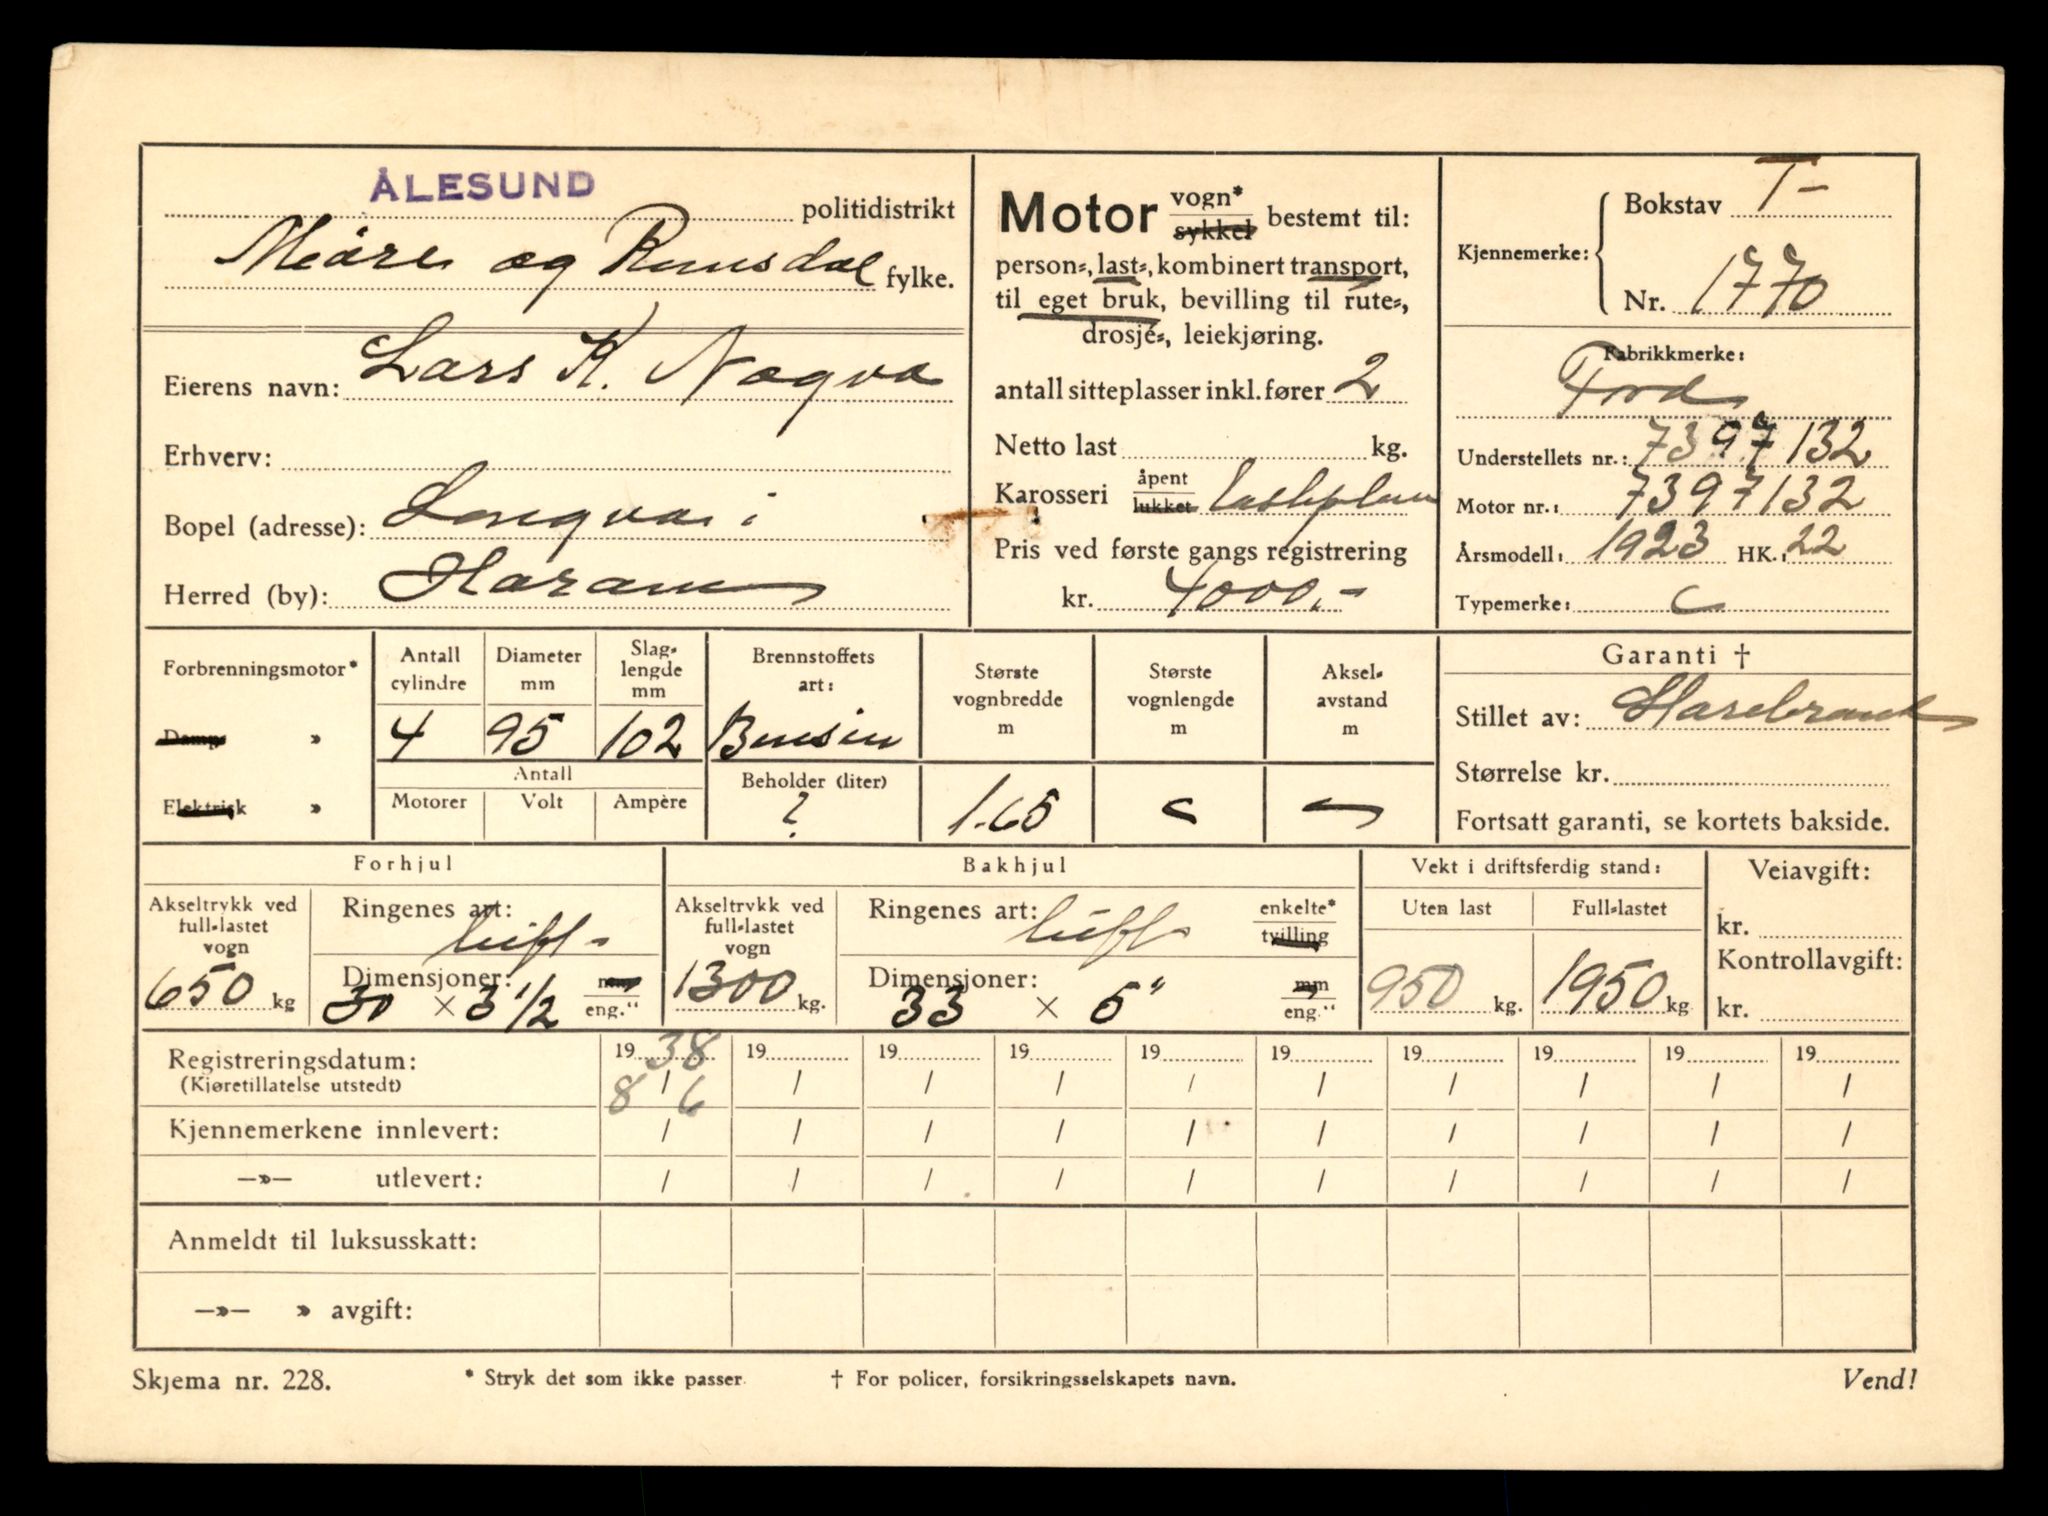 ÅLESUND politidistrikt
Møre og Romsdal fylke.
Eierens navn: Lars K. Nogva
Erhverv:
Bopel (adresse): Longva i
Herred (by): Haram
Motor vogn* sykkel bestemt til:
person-, last-, kombinert transport,
til eget bruk, bevilling til rute-,
drosje-, leiekjøring.
antall sitteplasser inkl. fører 2
Netto last kg.
Karosseri åpent lukket lasteplan
Pris ved første gangs registrering
kr. 4000.-
Kjennemerke: Bokstav T-
Nr. 1770
Fabrikkmerke:
Ford
Understellets nr.: 7397132
Motor nr.: 7397132
Årsmodell: 1923 HK.: 22
Typemerke: C
Forbrenningsmotor*
Damp- »
Elektrisk »
Antall cylindre
4
Diameter mm
95
Slaglengde mm
102
Antall
Motorer Volt Ampère
Brennstoffets art:
Bensin
Beholder (liter)
?
Største vognbredde m
1.65
Største vognlengde m
Aksel-avstand m
Garanti †
Stillet av:
Størrelse kr.
Fortsatt garanti, se kortets bakside.
Forhjul
Akseltrykk ved full-lastet vogn
650 kg
Ringenes art: luft
Dimensjoner:
30 × 3 1/2 mm eng."
Bakhjul
Akseltrykk ved full-lastet vogn
1300 kg.
Ringenes art: luft enkelte* tvilling
Dimensjoner:
33 × 5" mm eng."
Vekt i driftsferdig stand:
Uten last Full-lastet
950 kg. 1950 kg
Veiavgift:
kr.
Kontrollavgift:
kr.
Registreringsdatum: 19 38 19 19 19 19 19 19 19 19 19
(Kjøretillatelse utstedt) 8 / 6 / / / / / / / / /
Kjennemerkene innlevert: / / / / / / / / / /
—»— utlevert: / / / / / / / / / /
Anmeldt til luksusskatt:
—»— » avgift:
Skjema nr. 228. * Stryk det som ikke passer † For policer, forsikringsselskapets navn. Vend!